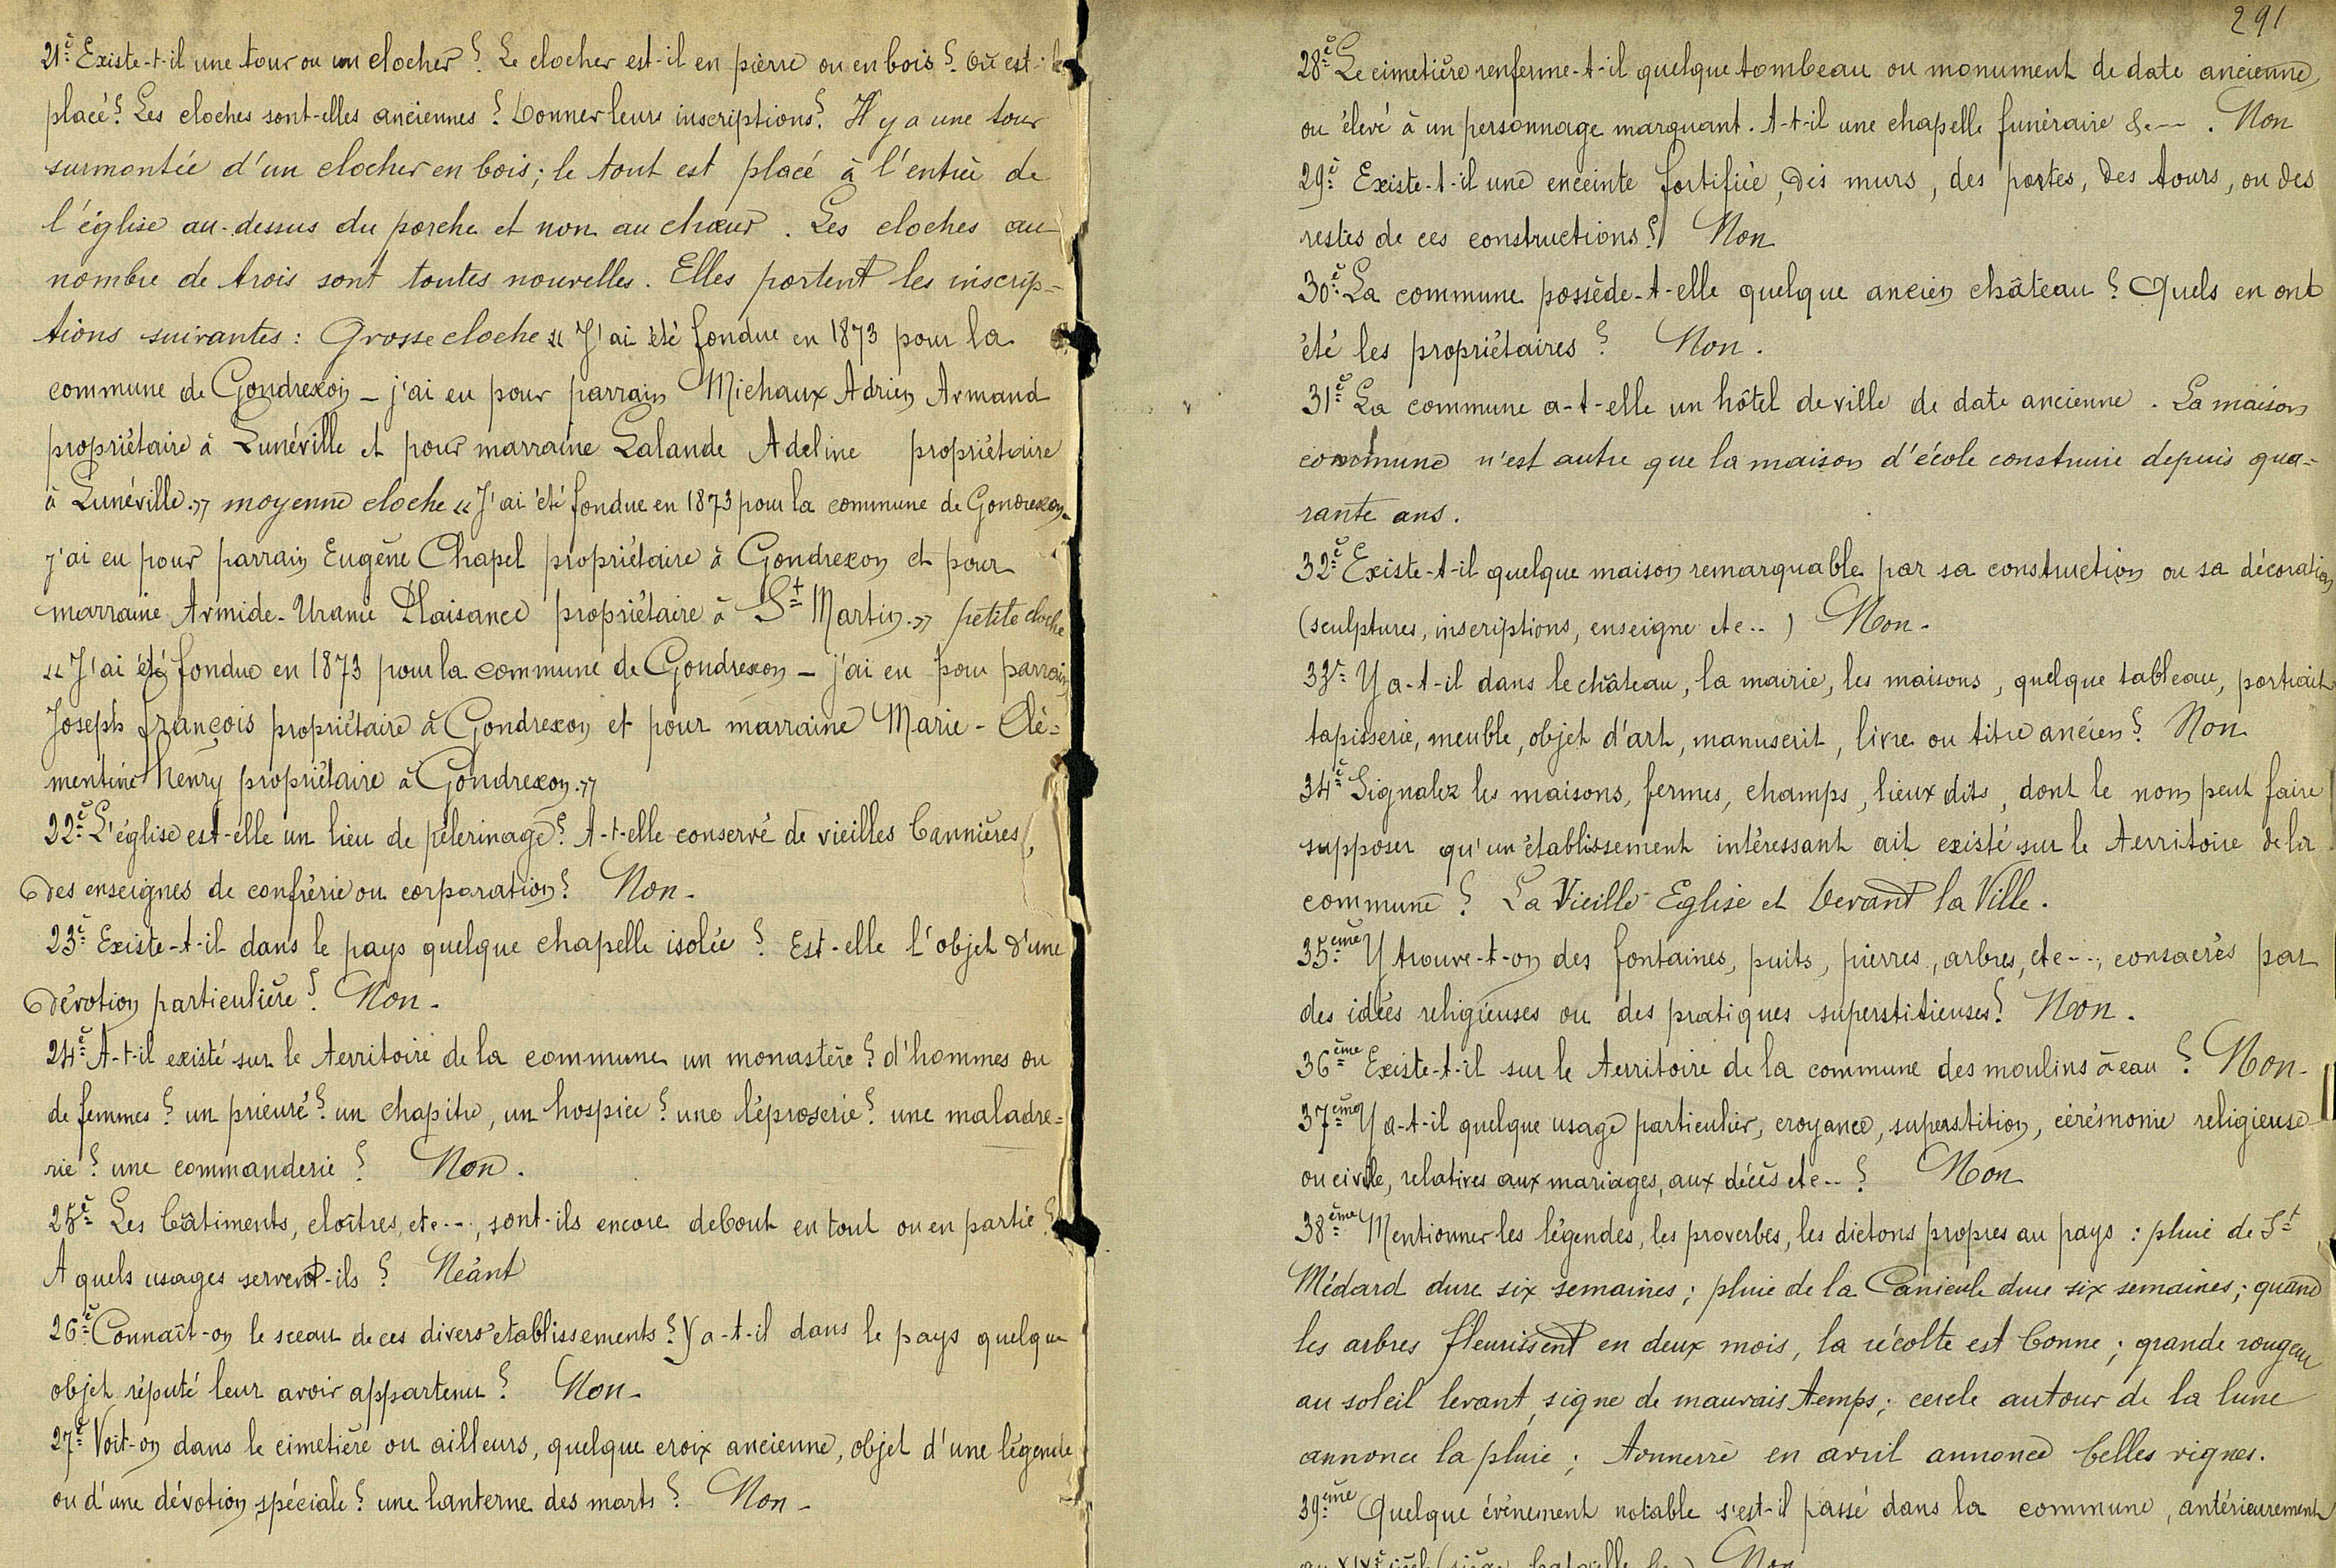 21e Existe-t-il une tour ou un clocher ? Le clocher est-il en pierre ou en bois ? Où est-il
placé ? Les cloches sont-elles anciennes ? Donner leurs inscriptions ? Il y a une tour
surmontée d'un clocher en bois ; le tout est placé à l'entrée de
l'église au-dessus du porche et non au chœur. Les cloches au
nombre de trois sont toutes nouvelles. Elles portent les inscrip-
tions suivantes : Grosse cloche « J'ai été fondue en 1873 pour la
commune de Gondrexon - j'ai eu pour parrain Michaux Adrien Armand
propriétaire à Lunéville et pour marraine Lalande Adeline propriétaire
à Lunéville. » moyenne cloche « J'ai été fondue en 1873 pour la commune de Gondrexon
j'ai eu pour parrain Eugène Chapel propriétaire à Gondrexon et pour
marraine Armide-Uranie Plaisance propriétaire à St Martin. » petite cloche
« J'ai été fondue en 1873 pour la commune de Gondrexon - j'ai eu pour parrain
Joseph françois propriétaire à Gondrexon et pour marraine Marie-Clé=
mentine henry propriétaire à Gondrexon. »
22e L'église est-elle un lieu de pélerinage ? A-t-elle conservé de vieilles bannières,
des enseignes de confrérie ou corporation ? Non.
23e Existe-t-il dans le pays quelque chapelle isolée ? Est-elle l'objet d'une
dévotion particulière ? Non.
24e A-t-il existé sur le territoire de la commune un monastère ? d'hommes ou
de femmes ? un prieuré ? un chapitre, un hospice ? une léproserie ? une maladre=
rie ? une commanderie ? Non.
25e Les bâtiments, cloîtres, etc..., sont-ils encore debout en tout ou en partie ?
A quels usages servent-ils ? Néant
26e Connaît-on le sceau de ces divers établissements ? Y a-t-il dans le pays quelque
objet réputé leur avoir appartenu ? Non.
27e Voit-on dans le cimetière ou ailleurs, quelque croix ancienne, objet d'une légende
ou d'une dévotion spéciale ? une lanterne des morts ? Non.
291
28e Le cimetière renferme-t-il quelque tombeau ou monument de date ancienne,
ou élevé à un personnage marquant. A-t-il une chapelle funéraire &... Non
29e Existe-t-il une enceinte fortifiée, des murs, des portes, des tours, ou des
restes de ces constructions ? Non
30e La commune possède-t-elle quelque ancien château ? Quels en ont
été les propriétaires ? Non.
31e La commune a-t-elle un hôtel de ville de date ancienne. La maison
commune n'est autre que la maison d'école construite depuis qua=
rante ans.
32e Existe-t-il quelque maison remarquable par sa construction ou sa décoration
(sculptures, inscriptions, enseigne etc..) Non.
33e Y a-t-il dans le château, la mairie, les maisons, quelque tableau, portrait
tapisserie, meuble, objet d'art, manuscrit, livre ou titre ancien ? Non
34e Signalez les maisons, fermes, champs, lieux dits, dont le nom peut faire
supposer qu'un établissement intéressant ait existé sur le territoire de la
commune ? La Vieille Eglise et Devant la Ville.
35ème Y trouve-t-on des fontaines, puits, pierres, arbres, etc..., consacrés par
des idées religieuses ou des pratiques superstitieuses ? Non.
36ème Existe-t-il sur le territoire de la commune des moulins à eau ? Non.
37ème Y a-t-il quelque usage particulier, croyance, superstition, cérémonie religieuse
ou civile, relatives aux mariages, aux décès etc.. ? Non
38ème Mentionner les légendes, les proverbes, les dictons propres au pays : pluie de St
Médard dure six semaines ; pluie de la Canicule dure six semaines ; quand
les arbres fleurissent en deux mois, la récolte est bonne ; grande rougeur
au soleil levant, signe de mauvais temps ; cercle autour de la lune
annonce la pluie ; tonnerre en avril annonce belles vignes.
39ème Quelque événement notable s'est-il passé dans la commune, antérieurement
Non